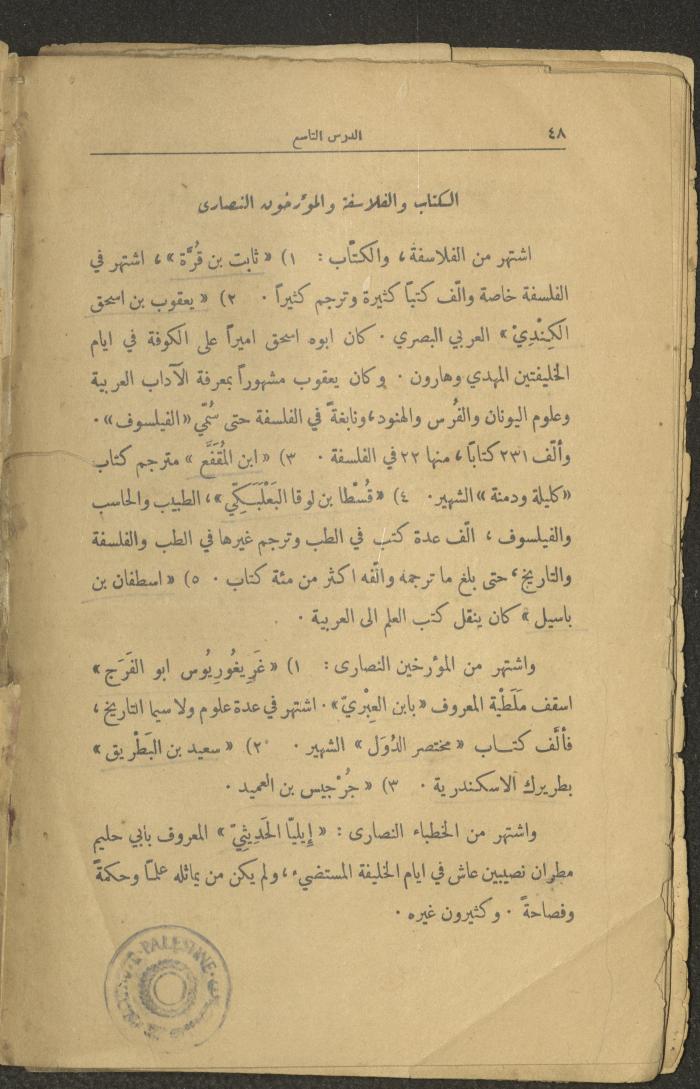 ٤٨
الدرس التاسع
الكتاب والفلاسفة والمؤرخون النصارى
اشتهر من الفلاسفة، والكتّاب : ١) «ثابت بن قُرَّة»، اشتهر في
الفلسفة خاصة والّف كتباً كثيرة وترجم كثيراً . ٢) «يعقوب بن اسحق
الكِنْدِيْ» العربي البصري . كان ابوه اسحق اميراً على الكوفة في ايام
الخليفتين المهدي وهارون . وكان يعقوب مشهوراً بمعرفة الآداب العربية
وعلوم اليونان والفُرس والهنود، ونابغةً في الفلسفة حتى سُمّي «الفيلسوف».
وألّف ٢٣١ كتاباً، منها ٢٢ في الفلسفة . ٣) «ابن المُقَفَّع» مترجم كتاب
«كليلة ودمنة» الشهير . ٤) «قُسْطا بن لوقا البَعْلَبَكّي»، الطبيب والحاسب
والفيلسوف، الّف عدة كتب في الطب وترجم غيرها في الطب والفلسفة
والتاريخ، حتى بلغ ما ترجمه والّفه اكثر من مئة كتاب . ٥) «اسطفان بن
باسيل» كان ينقل كتب العلم الى العربية .
واشتهر من المؤرخين النصارى : ١) «غَرِيغُورِيُوس ابو الفَرَج»
اسقف مَلَطْيَة المعروف «بابن العِبْريّ» . اشتهر في عدة علوم ولا سيما التاريخ،
فألَّف كتاب «مختصر الدُوَل» الشهير . ٢) «سعيد بن البَطْرِيق»
بطريرك الاسكندرية . ٣) «جُرْجيس بن العميد .
واشتهر من الخطباء النصارى : «إيليّا الحَدِيثِيّ» المعروف بابي حليم
مطران نصيبين عاش في ايام الخليفة المستضيء، ولم يكن من يماثله علماً وحكمةً
وفصاحةً . وكثيرون غيره .
PALESTINE